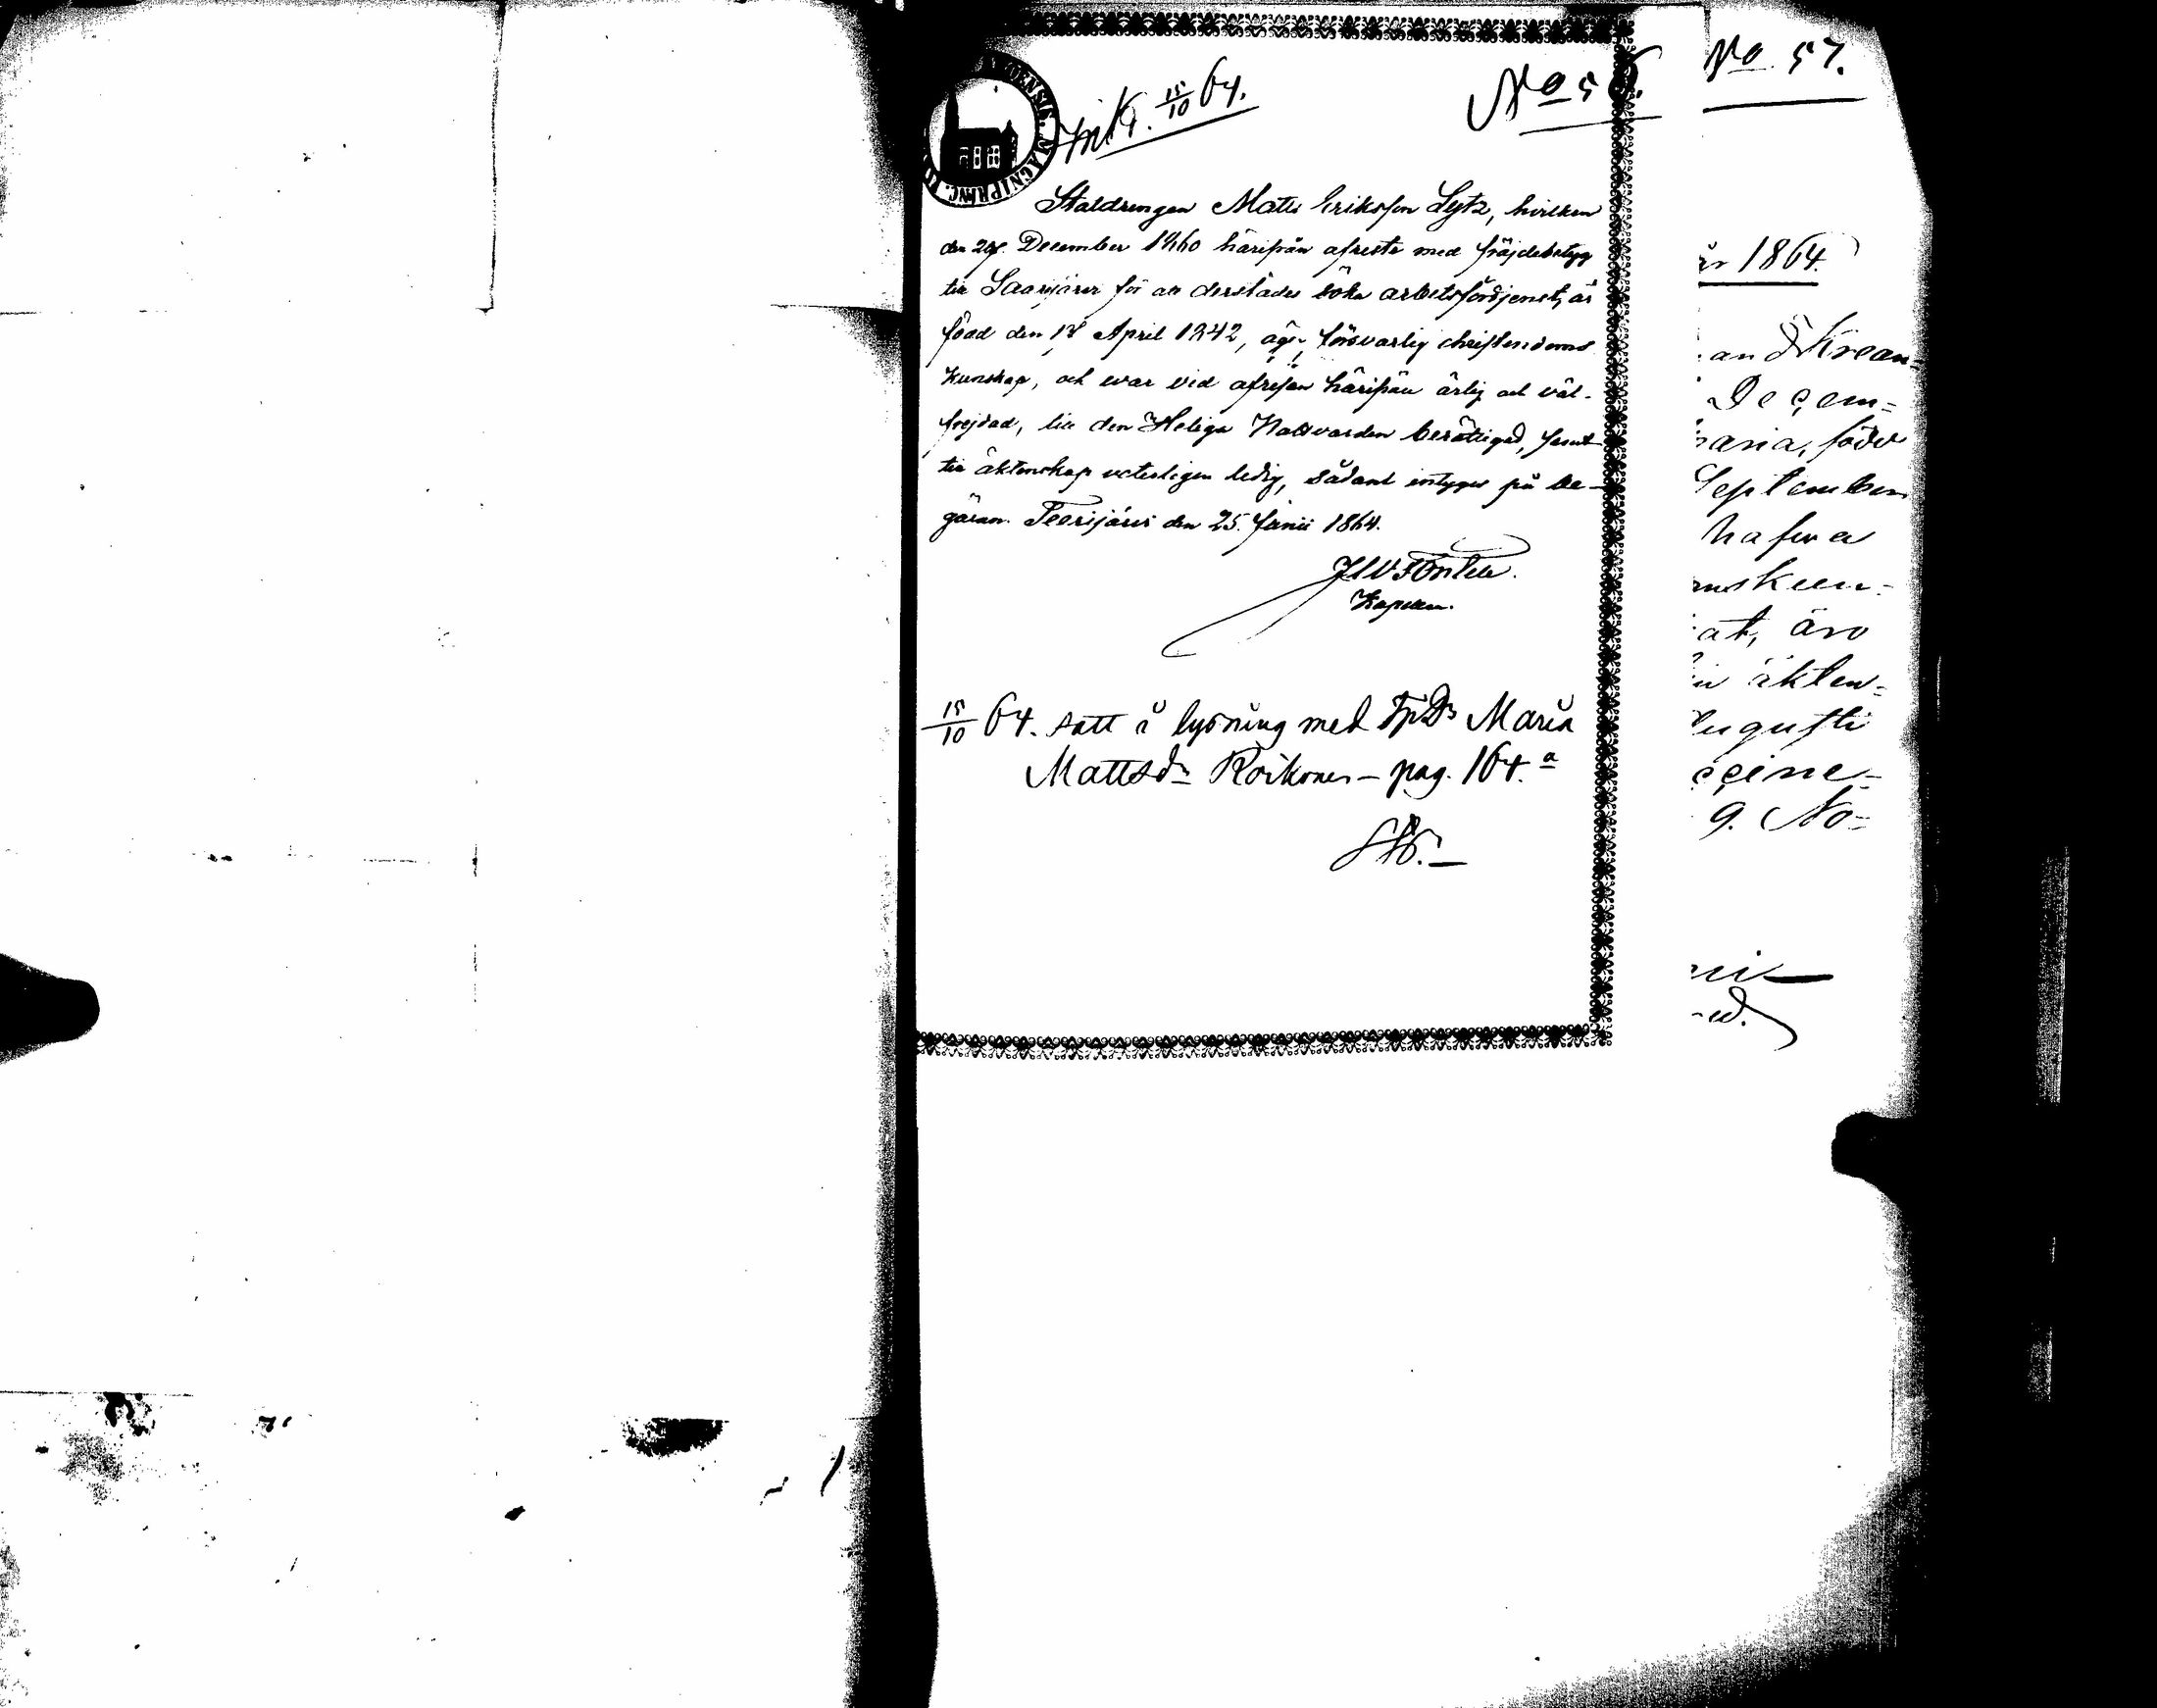 Ink. 15/10 64.
No 56.
Staldrengen Matts Eriksson Lytz, hvilken
den 29. December 1860 härifrån afreste med fräjdebetyg
till Saarijärvi för att derstädes söka arbetsförtjenst, är
född den 18 April 1842, äger försvarlig christendoms
kunskap, och war vid afresan härifrån ärlig och väl-
frejdad, till den Heliga Nattvarden berättigad, samt
till äktenskap veterligen ledig, sådant intygas på be-
gäran. Teerijärvi den 25. Junii 1864.
Kaplan.
15/10 64. tatt i lysning med TpDr Maria
Mattsdr Roikonen – pag. 164.a
No 57.
år 1864.
an
Decem=
aria, född
September
hafva
skun-
at, äro
äkten-
Augusti
ccine-
9. No=